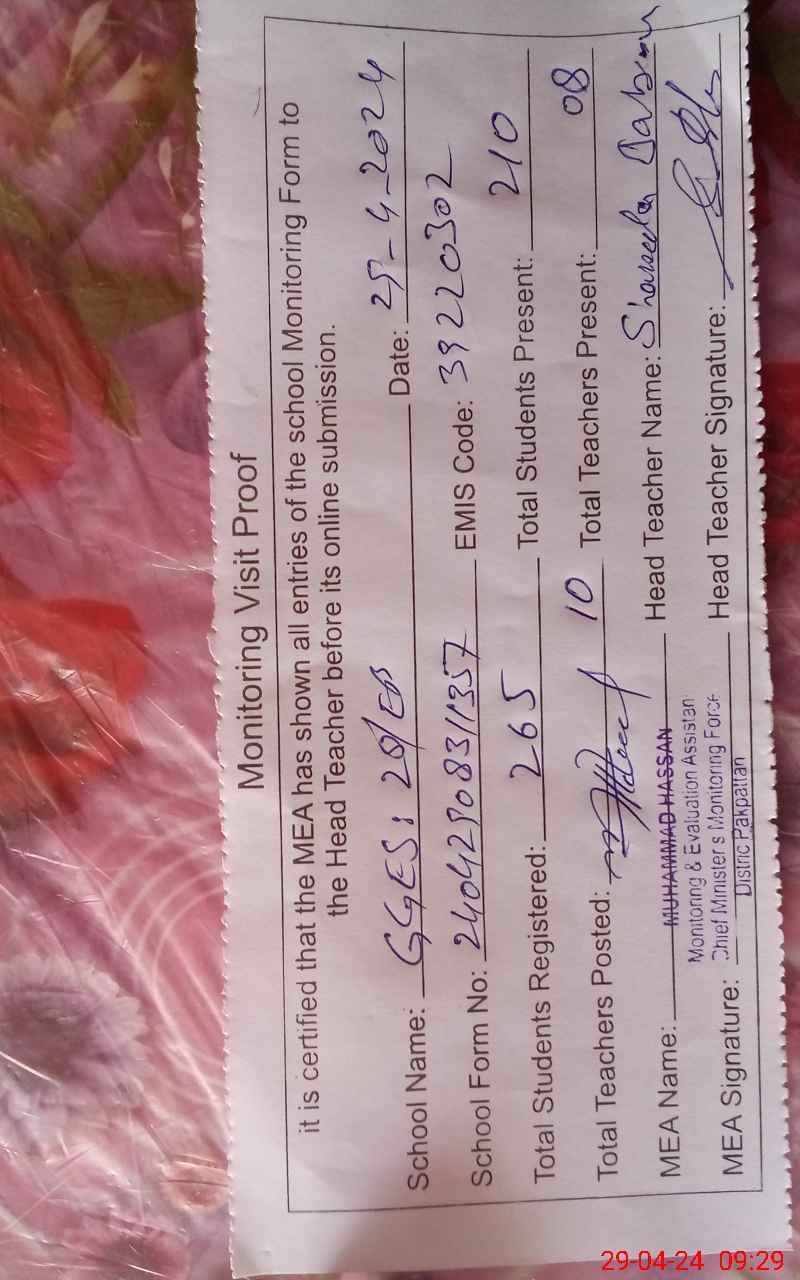 Monitoring Visit Proof
it is certified that the MEA has shown all entries of the school Monitoring Form to
the Head Teacher before its online submission.
School Name: GGES: 28/EB Date: 29-4-2024
School Form No: 24042908311357 EMIS Code: 39220302
Total Students Registered: 265 Total Students Present: 210
Total Teachers Posted: 10 Total Teachers Present: 08
MEA Name: MUHAMMAD HASSAN Head Teacher Name:
Monitoring & Evaluation Assistan
MEA Signature: Chief Minister s Monitoring Force Head Teacher Signature:
Distric Pakpattan
29-04-24 09:29